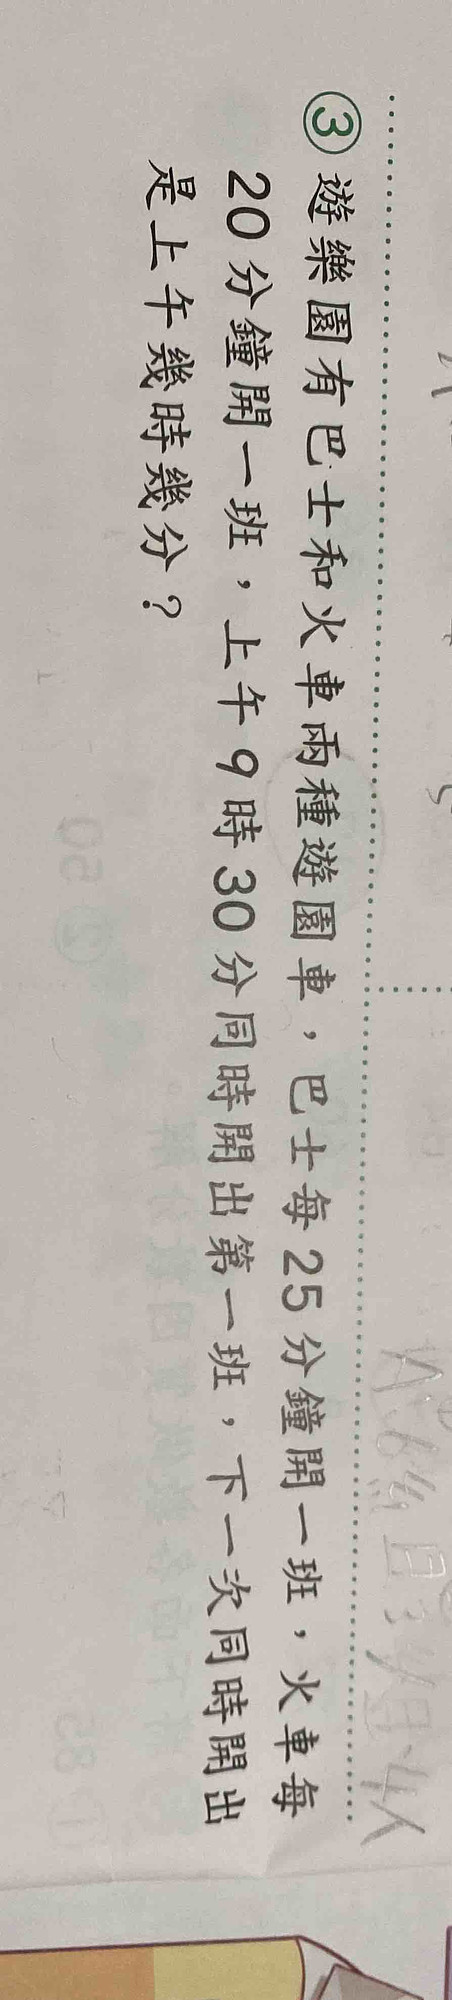 ③遊樂園有巴士和火車兩種遊園車，巴士每25分鐘開一班，火車每
20分鐘開一班，上午9時30分同時開出第一班，下一次同時開出
是上午幾時幾分？